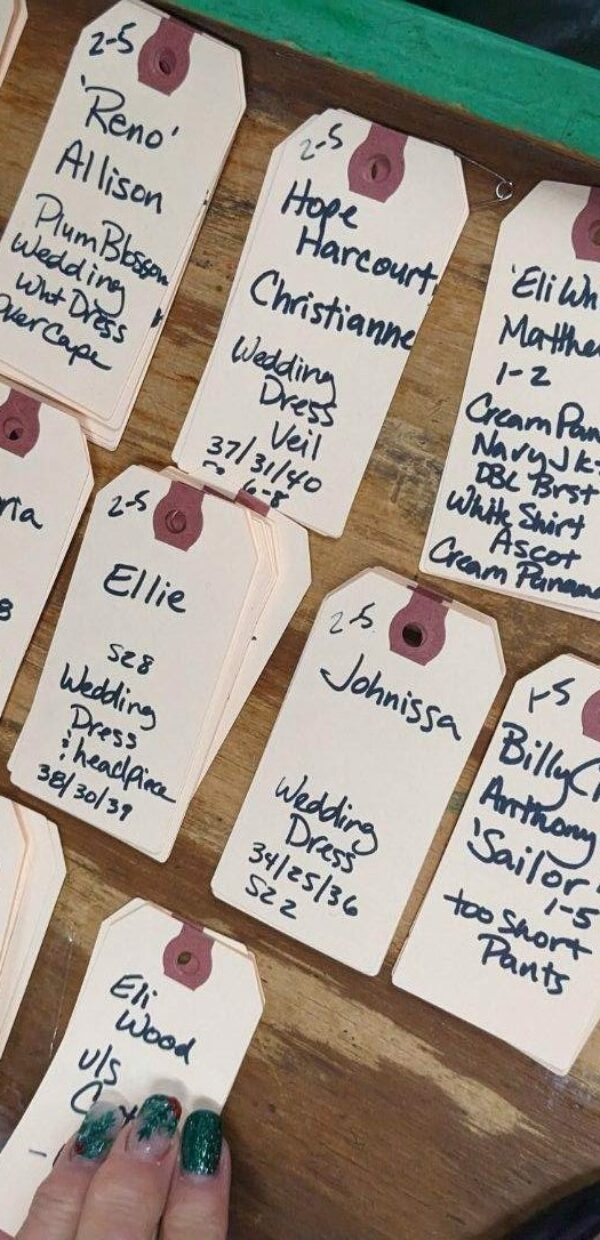 2-5
'Reno'
Allison
Plum Blossom
Wedding
Wht Dress
Over Cape
2-5
Hope
Harcourt,
Christianne
Wedding
Dress
Veil
37/31/40
6-8
'Eli Wh
Matthe
1-2
Cream Pan
Navy Jk
DBL Brst
White Shirt
Ascot
Cream Panama
ria
8
2-5
Ellie
SZ8
Wedding
Dress
& headpiece
38/30/39
2-5
Johnissa
Wedding
Dress
34/25/36
SZ2
1-5
Billy C
Anthony
'Sailor'
1-5
too short
Pants
Eli
Wood
u/s